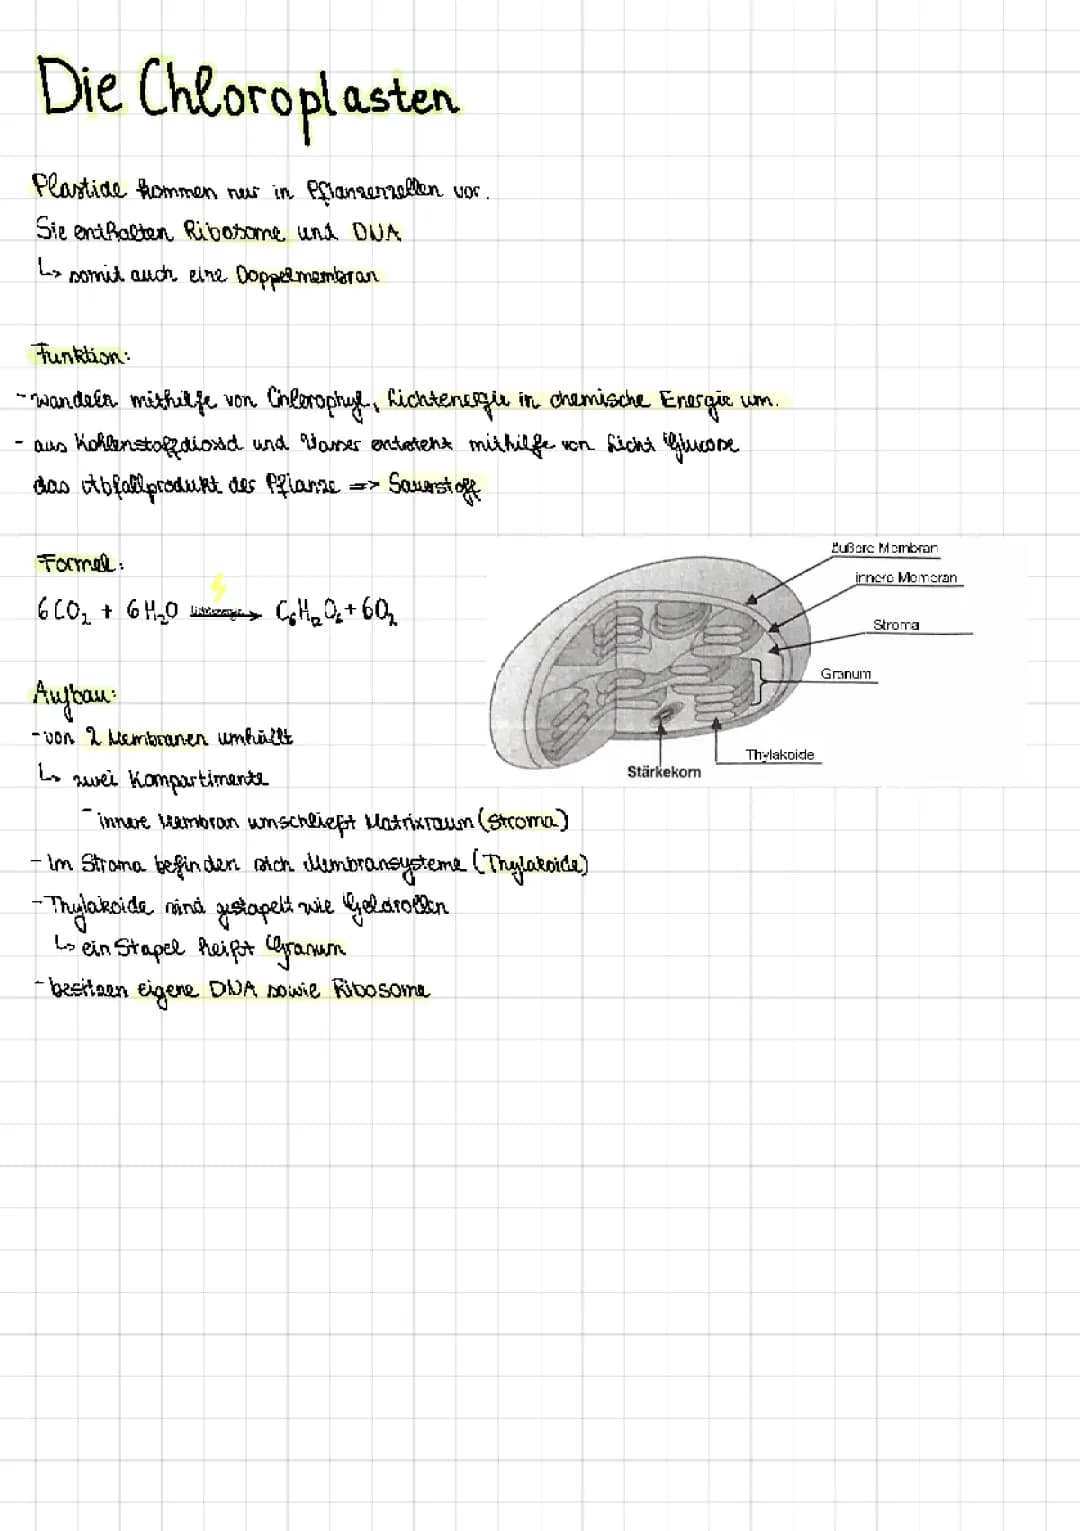 Die Chloroplasten
Plastide kommen nur in Pflanzenzellen vor.
Sie enthalten Ribosome und DNA
↳ somit auch eine Doppelmembran
Funktion:
- wandeln mithilfe von Chlorophyl, Lichtenergie in chemische Energie um.
- aus Kohlenstoffdioxid und Wasser entsteht mithilfe von Licht Glucose
das Abfallprodukt der Pflanze => Sauerstoff
Formel:
6 CO₂ + 6 H₂O Lichtenergie → C₆H₁₂O₆ + 6O₂
äußere Membran
innere Membran
Stroma
Granum
Thylakoide
Stärkekorn
Aufbau:
- von 2 Membranen umhüllt
↳ zwei Kompartimente
- innere Membran umschließt Matrixraum (Stroma)
- Im Stroma befinden sich Membransysteme (Thylakoide)
- Thylakoide sind gestapelt wie Geldrollen
↳ ein Stapel heißt Granum
- besitzen eigene DNA sowie Ribosome